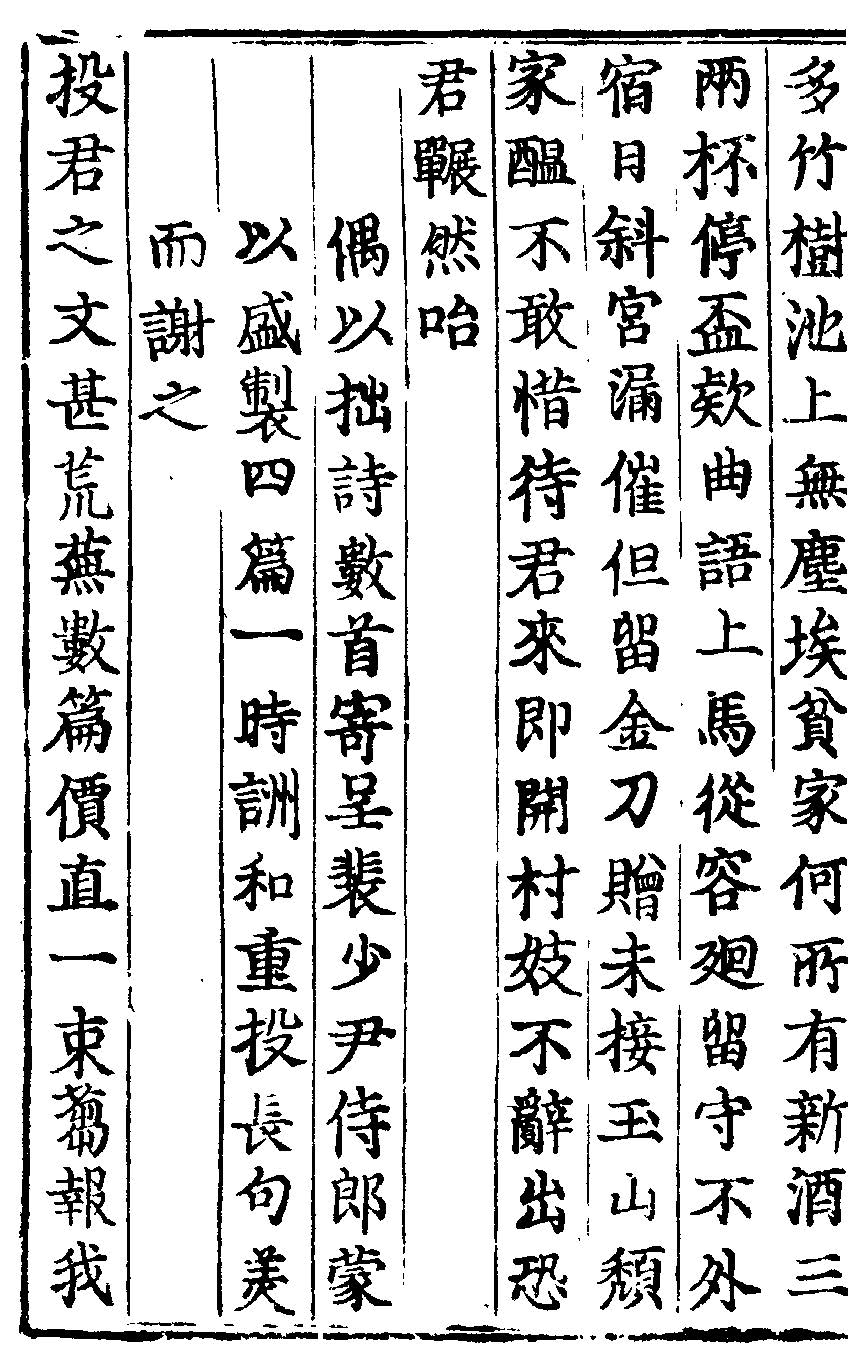 多竹樹池上無塵埃貧家何所有新酒三
兩杯停盃欵曲語上馬從容廻留守不外
宿日斜宮漏催但留金刀贈未接玉山頹
家醖不敢惜待君來即開村妓不辭出恐
君冁然咍
偶以拙詩數首寄呈裴少尹侍郎蒙
以盛製四篇一時詶和重投長句美
而謝之
投君之文甚荒蕪數篇價直一束蒭報我